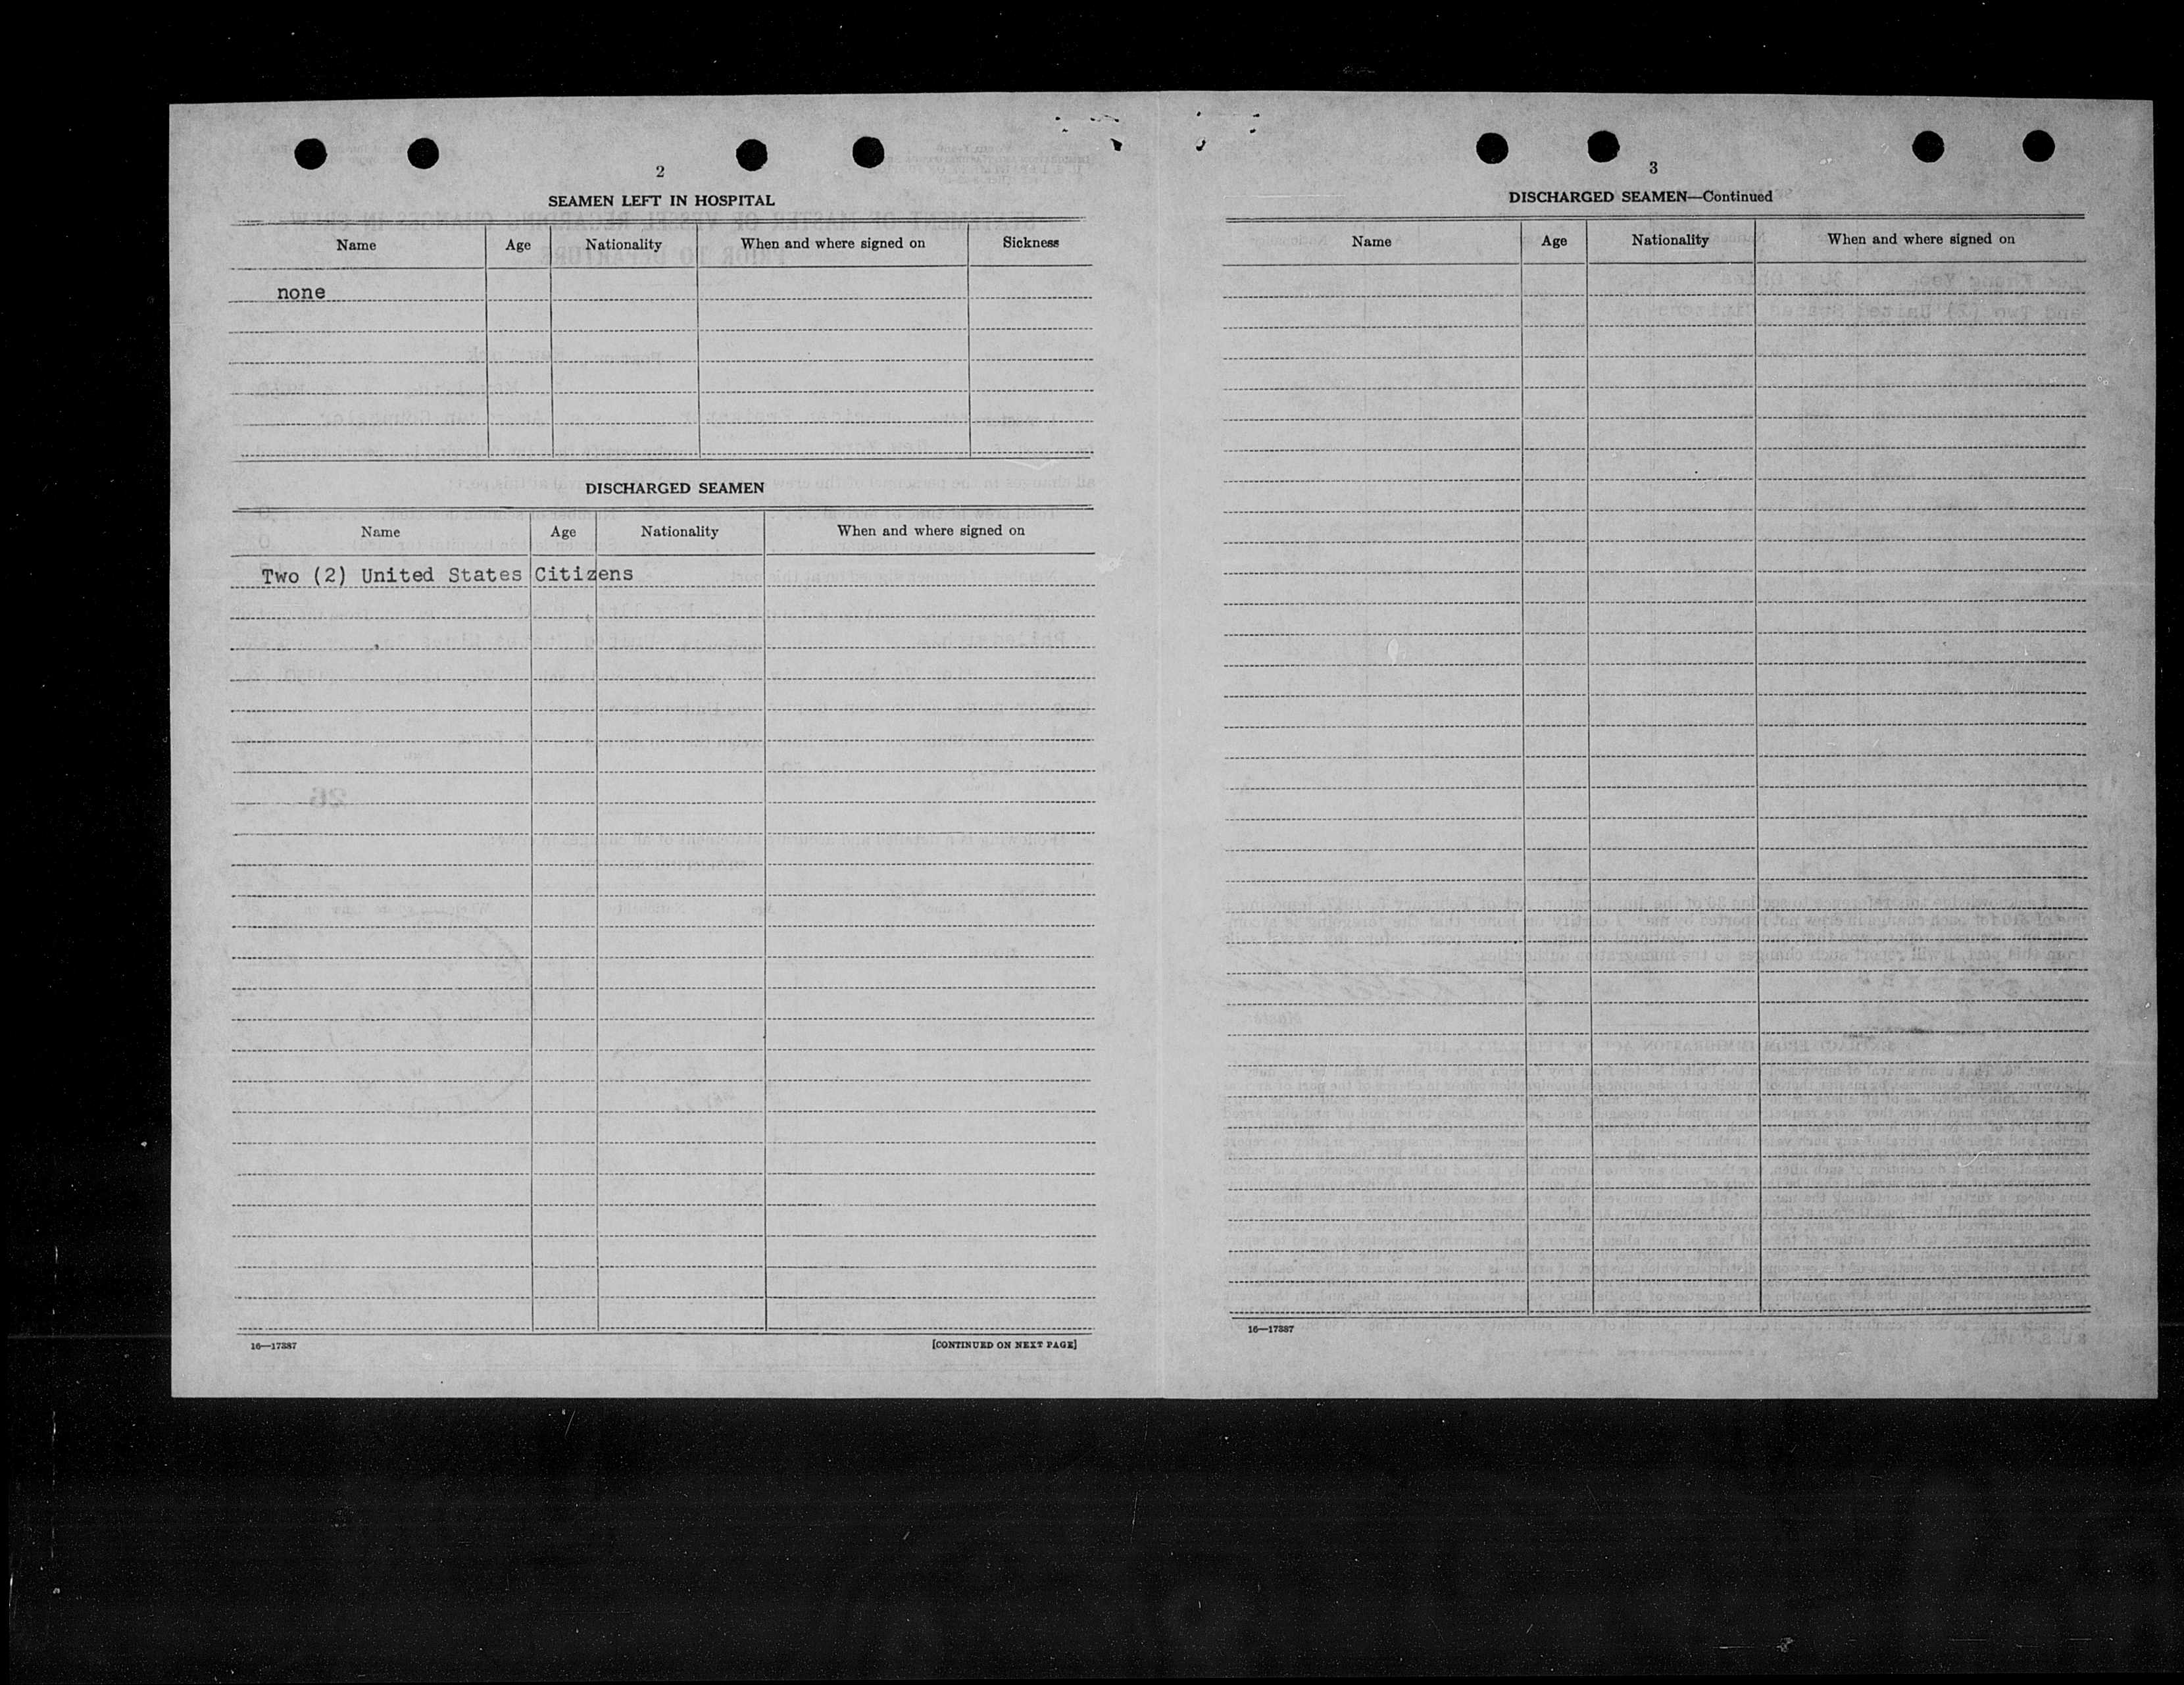 2
SEAMEN LEFT IN HOSPITAL
Name Age Nationality When and where signed on Sickness
none
DISCHARGED SEAMEN
Name Age Nationality When and where signed on
Two (2) United States Citizens
16—17387 [CONTINUED ON NEXT PAGE]
3
DISCHARGED SEAMEN—Continued
Name Age Nationality When and where signed on
16—17387